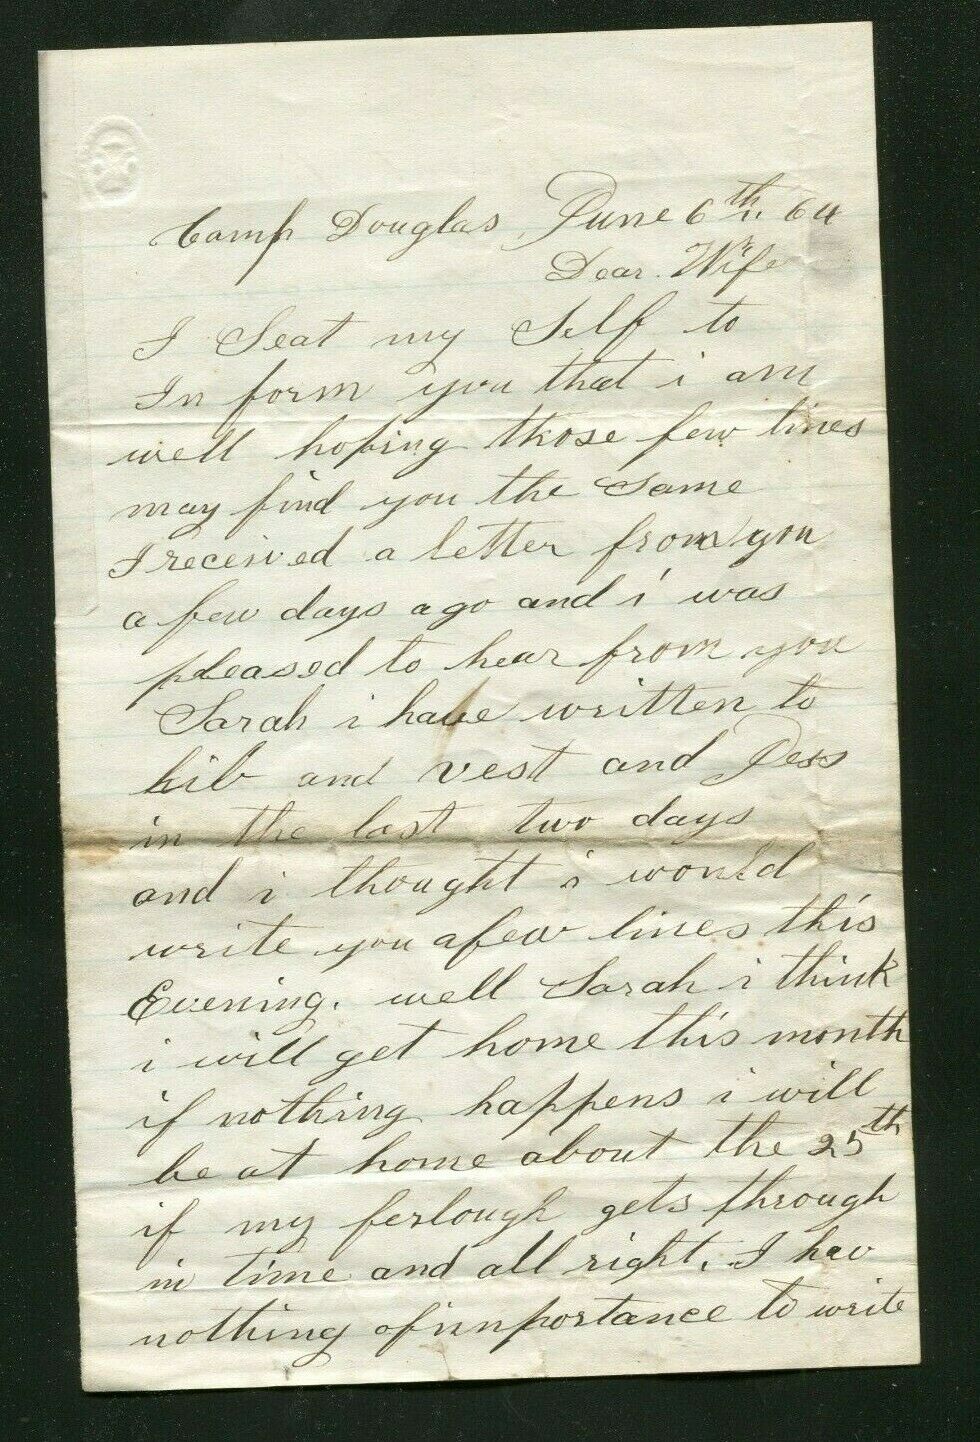 Camp Douglas June 6th 64
Dear Wife
I Seat my Self to
In form you that i am
well hoping those few lines
may find you the Same
I received a letter from you
a few days ago and i was
pleased to hear from you
Sarah i have written to
hib and vest and Jess
in the last two days
and i thought i would
write you a few lines this
Evening. well Sarah i think
i will get home this month
if nothing happens i will
be at home about the 25th
if my ferlough gets through
in time and all right. I hav
nothing of inportance to write